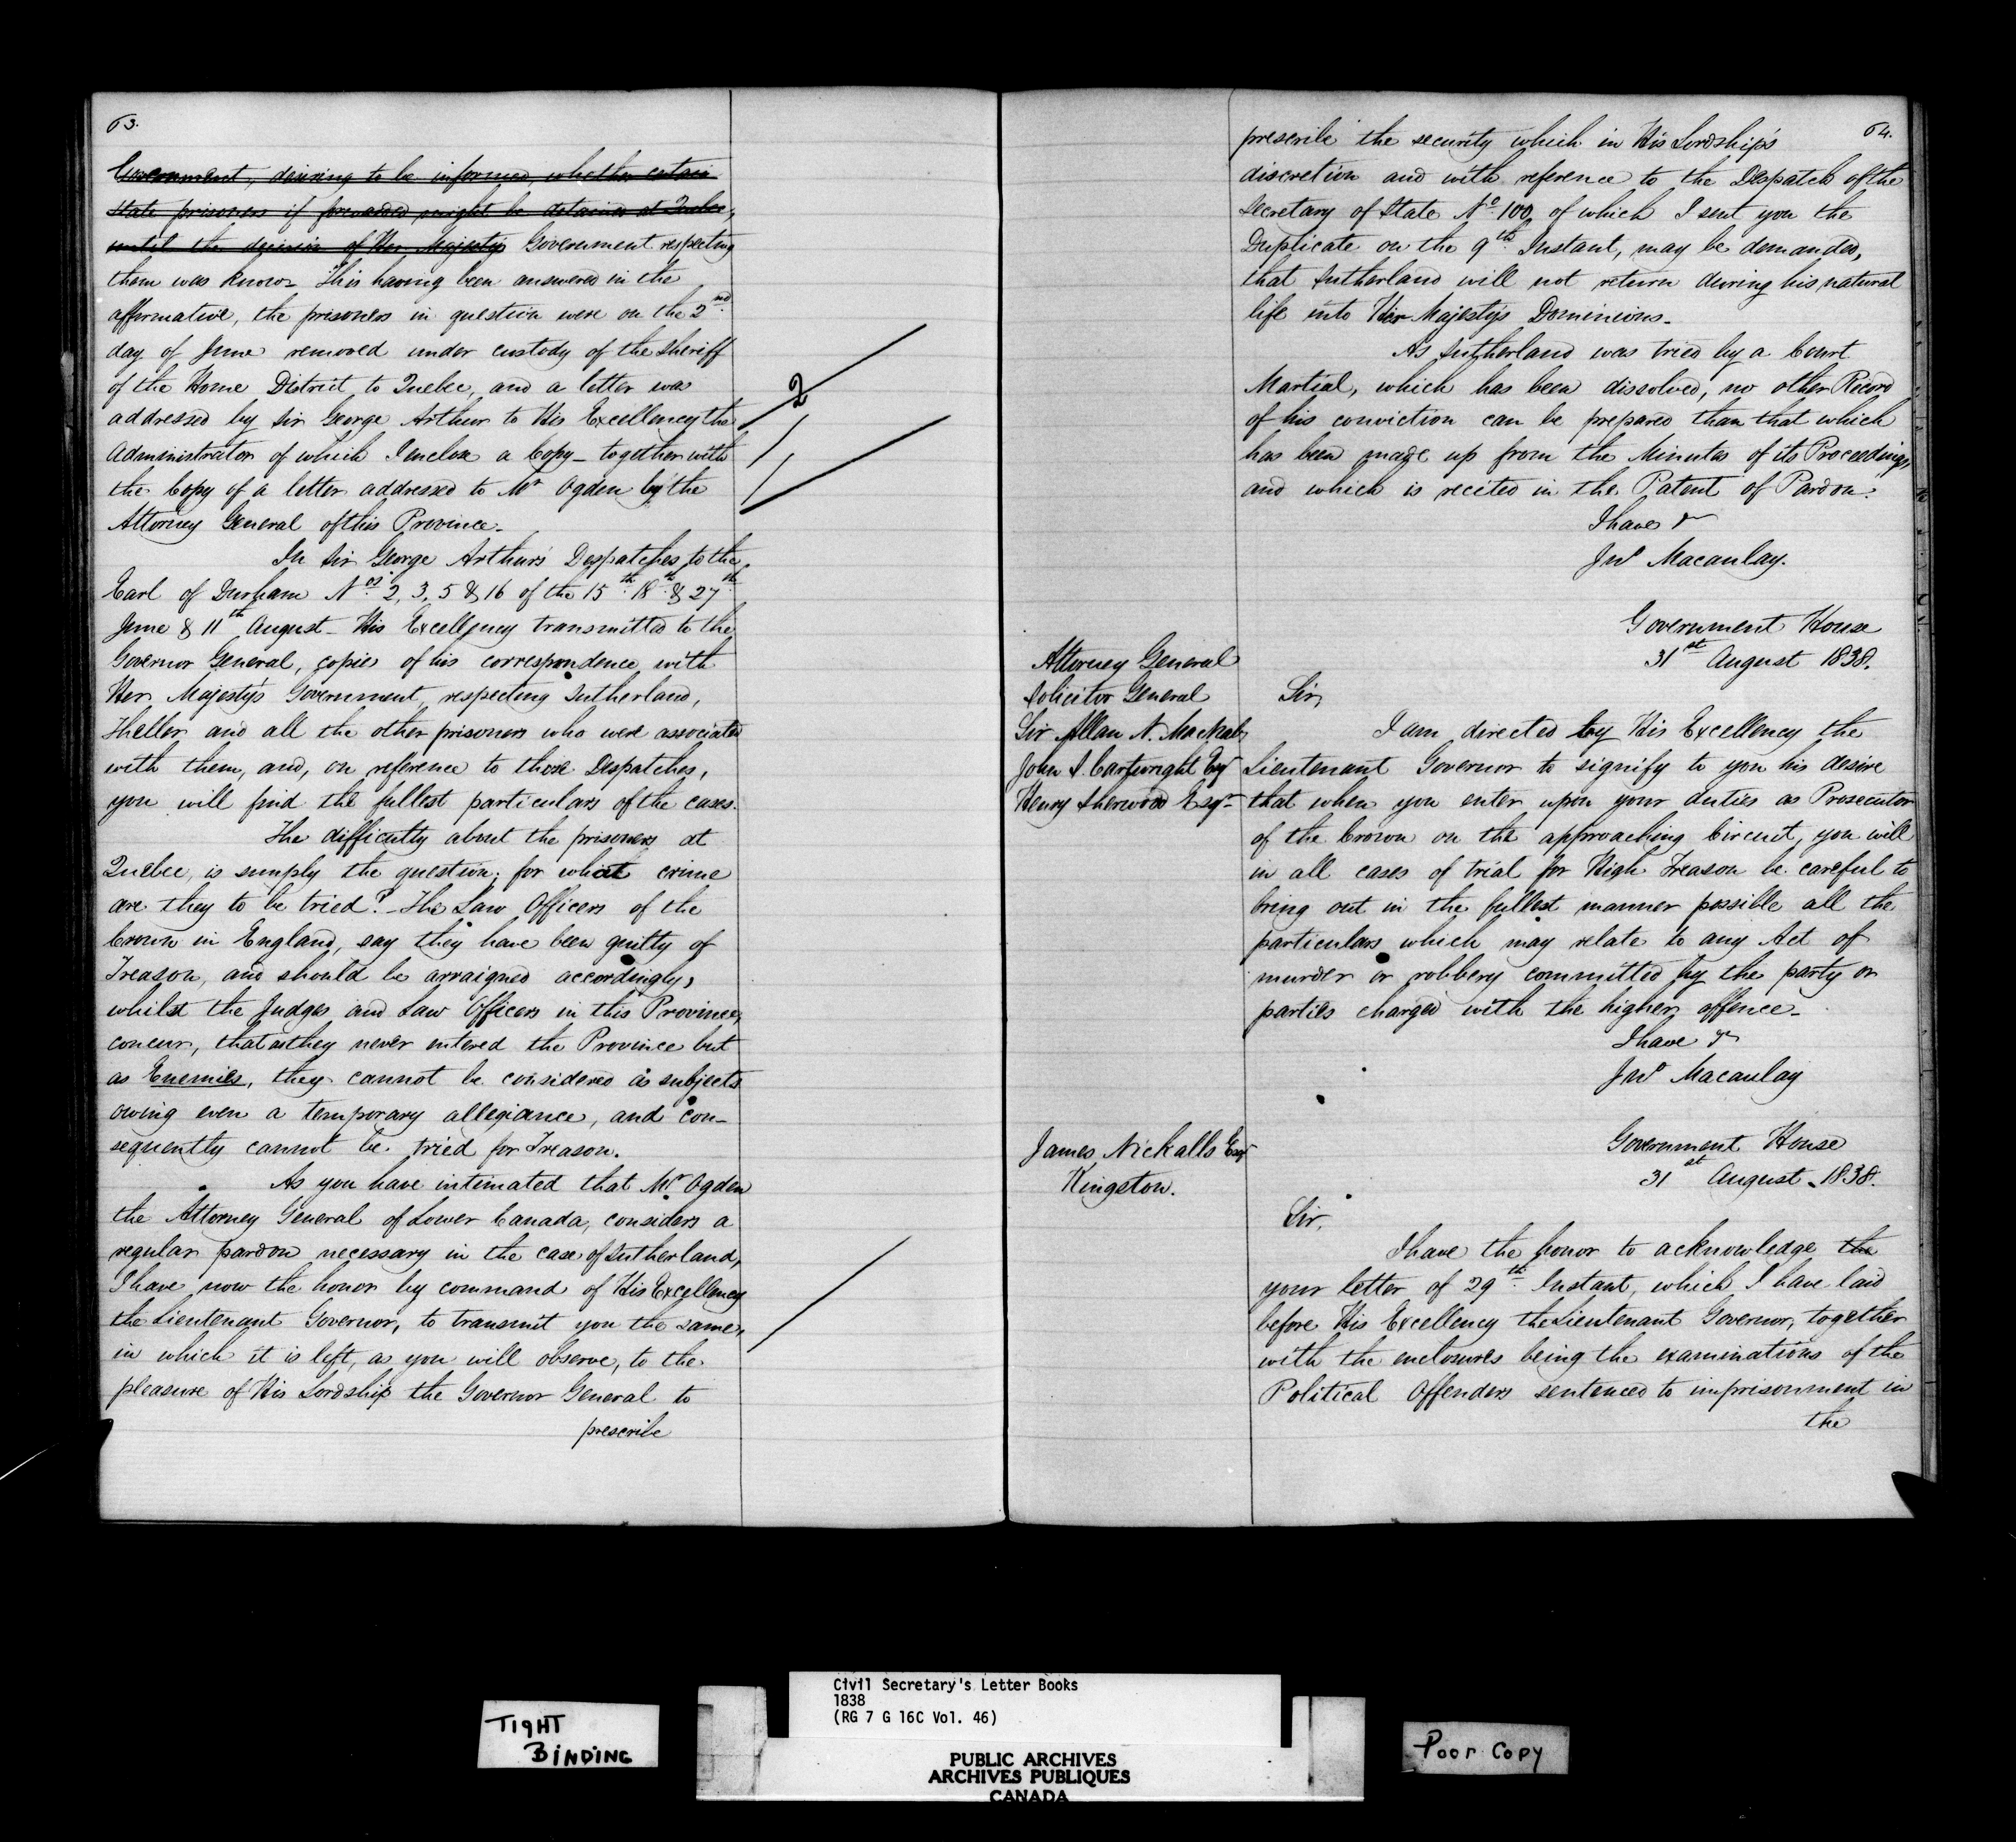 63.
Government, desiring to be informed, whether certain
state prisoners if forwarded might be detained at Quebec,
until the decision of Her Majestys Government respecting
them was known. This having been answered in the
affirmative, the prisoners in question were on the 2nd
day of June removed under custody of the Sheriff
of the Home District to Quebec, and a letter was
addressed by Sir George Arthur to His Excellency the
Administrator of which I enclose a Copy_ together with
the Copy of a letter addressed to Mr Ogden by the
Attorney General of this Province_
2
In Sir George Arthur's Despatches to the
Earl of Durham Nos 2, 3, 5 & 16 of the 15th 18th & 27th
June & 11th August_ His Excellency transmitted to the
Governor General, copies of his correspondence with
Her Majesty's Government respecting Sutherland,
Theller and all the other prisoners who were associated
with them, and, on reference to those Despatches,
you will find the fullest particulars of the cases.
The difficulty about the prisoners at
Quebec, is simply the question; for what crime
are they to be tried?_ The Law Officers of the
Crown in England, say they have been guilty of
Treason, and should be arraigned accordingly,
whilst the Judges and Law Officers in this Province,
concur, that as they never entered the Province but
as Enemies, they cannot be considered as subjects
owing even a temporary allegiance, and con-
sequently cannot be tried for Treason.
As you have intimated that Mr Ogden
the Attorney General of Lower Canada, considers a
regular pardon necessary in the case of Sutherland,
I have now the honor by command of His Excellency
the Lieutenant Governor, to transmit you the same,
in which it is left, as you will observe, to the
pleasure of His Lordship the Governor General to
prescribe
64.
prescribe the security which in His Lordship's
discretion and with reference to the Despatch of the
Secretary of State No 100, of which I sent you the
Duplicate on the 9th Instant, may be demanded,
that Sutherland will not return during his natural
life into Her Majesty's Dominions_
As Sutherland was tried by a Court
Martial, which has been dissolved, no other Record
of his conviction can be prepared than that which
has been made up from the Minutes of its Proceedings,
and which is recited in the Patent of Pardon.
I have &
Jno Macaulay.
Government House
31st August 1838.
Attorney General
Solicitor General
Sir Allan N. MacNab,
John S. Cartwright Esqr
Henry Sherwood Esqr
Sir,
I am directed by His Excellency the
Lieutenant Governor to signify to you his desire
that when you enter upon your duties as Prosecutor
of the Crown on the approaching Circuit, you will
in all cases of trial for High Treason be careful to
bring out in the fullest manner possible all the
particulars which may relate to any Act of
murder or robbery committed by the party or
parties charged with the higher offence_
I have &
Jno Macaulay
Government House
31st August_ 1838.
James Nickalls Esqr
Kingston.
Sir,
I have the honor to acknowledge the
your letter of 29th Instant, which I have laid
before His Excellency the Lieutenant Governor, together
with the enclosures being the examinations of the
Political Offenders sentenced to imprisonment in
the
TIGHT
BINDING
Civil Secretary's Letter Books
1838
(RG 7 G 16C Vol. 46)
PUBLIC ARCHIVES
ARCHIVES PUBLIQUES
CANADA
Poor Copy